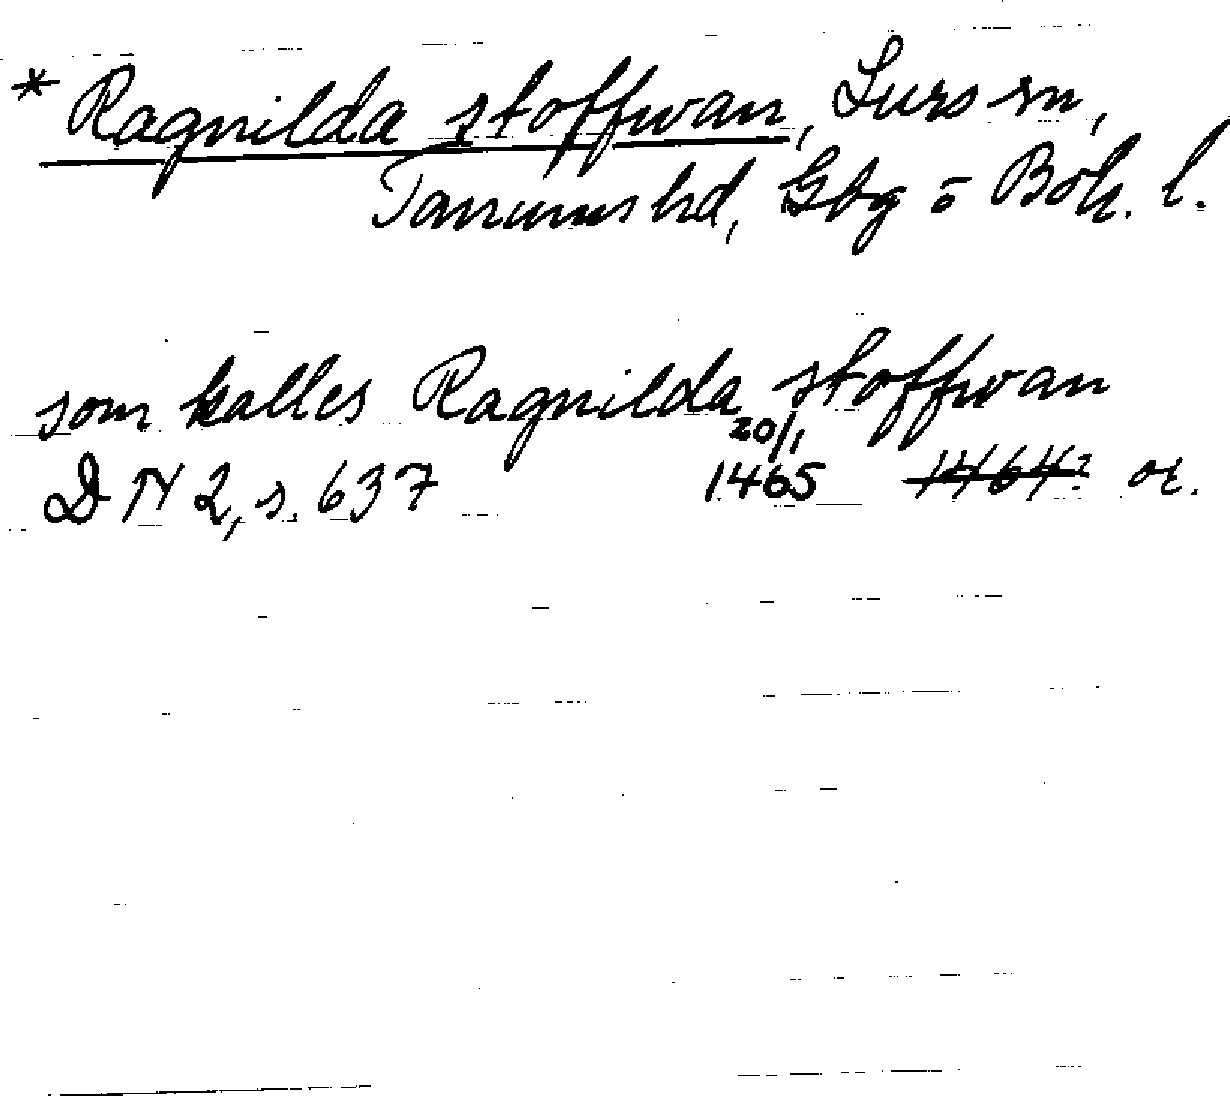 * Ragnilda stoffwan, Lurs sn,
Tanums hd, Gbg o Boh. l.
som kalles Ragnilda stoffwan
20/1
DN 2, s. 637 1465 1464? or.